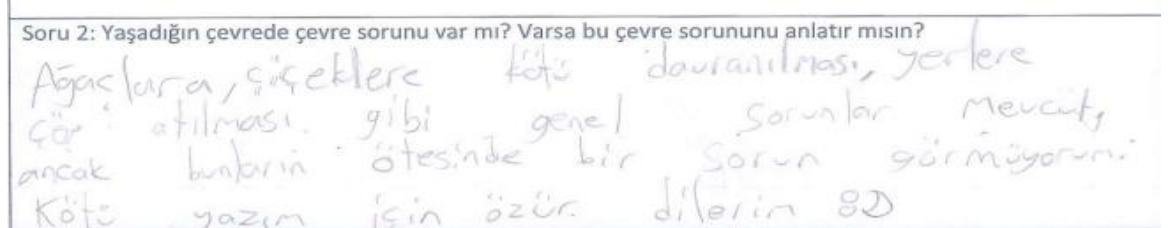 Soru 2: Yaşadığın çevrede çevre sorunu var mı? Varsa bu çevre sorununu anlatır mısın?
Ağaçlara, çiçeklere kötü davranılması, yerlere
çöp atılması gibi genel sorunlar mevcut,
ancak bunların ötesinde bir sorun görmüyorum.
Kötü yazım için özür dilerim 8D